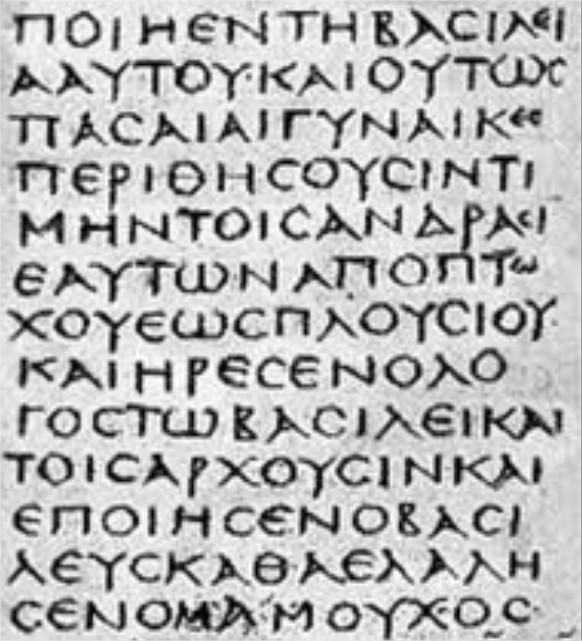 ΠΟΙΗΕΝΤΗΒΑϹΙΛΕΙ
ΑΑΥΤΟΥ·ΚΑΙΟΥΤΩϹ
ΠΑϹΑΙΑΙΓΥΝΑΙΚΕϹ
ΠΕΡΙΘΗϹΟΥϹΙΝΤΙ
ΜΗΝΤΟΙϹΑΝΔΡΑϹΙ
ΕΑΥΤΩΝΑΠΟΠΤΩ
ΧΟΥΕΩϹΠΛΟΥϹΙΟΥ·
ΚΑΙΗΡΕϹΕΝΟΛΟ
ΓΟϹΤΩΒΑϹΙΛΕΙΚΑΙ
ΤΟΙϹΑΡΧΟΥϹΙΝΚΑΙ
ΕΠΟΙΗϹΕΝΟΒΑϹΙ
ΛΕΥϹΚΑΘΑΕΛΑΛΗ
ϹΕΝΟΜΑΜΟΥΧΟϹ·